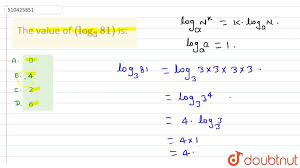 510425851
The value of (log₃ 81) is:
A. 0
B. 4
C. 2
D. 6
log_a N^K = K. log_a N.
log_a a = 1.
log₃ 81 = log₃ 3 × 3 × 3 × 3
= log₃ 3⁴
= 4. log₃ 3
= 4 × 1
= 4.
doubtnut